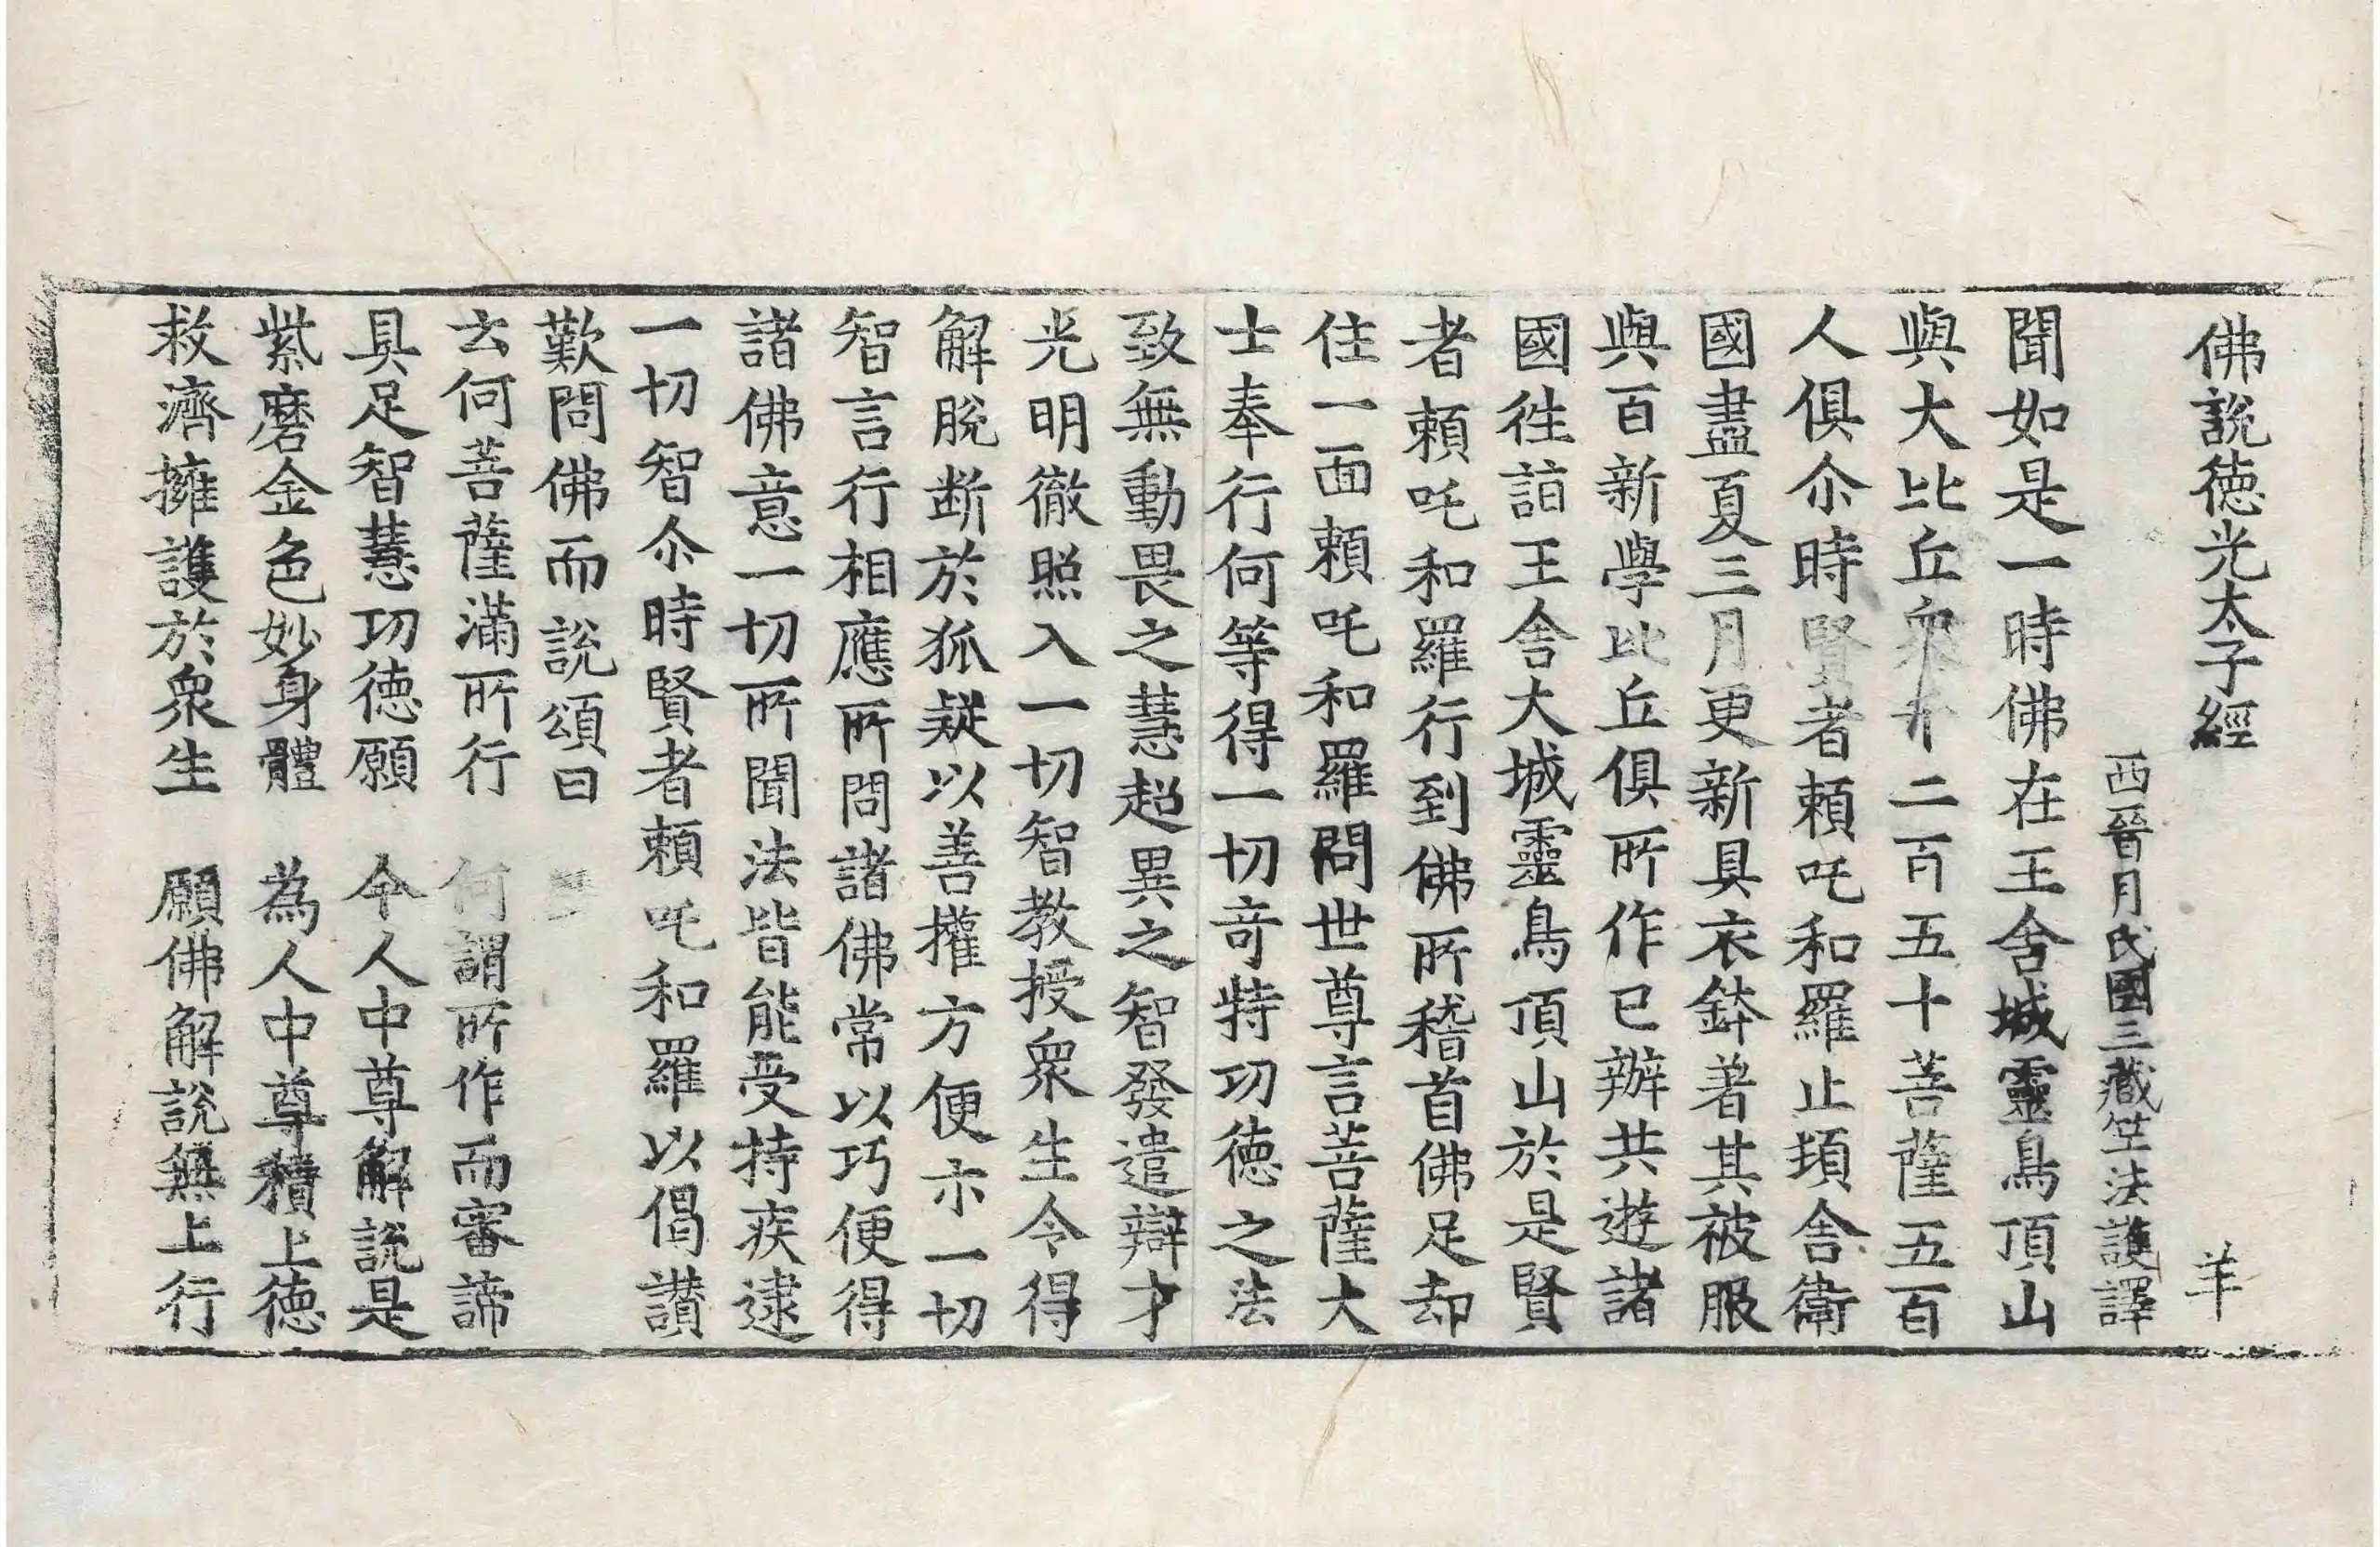 佛說德光太子經 羊
西晉月氏國三藏竺法護譯
聞如是一時佛在王舍城靈鳥頂山
與大比丘衆千二百五十菩薩五百
人俱尒時賢者頼吒和羅止頊舍衛
國盡夏三月更新具衣鉢著其被服
與百新學比丘俱所作已辦共遊諸
國徃詣王舍大城靈鳥頂山於是賢
者頼吒和羅行到佛所稽首佛足却
住一面頼吒和羅問世尊言菩薩大
士奉行何等得一切竒特功德之法
致無動畏之慧超異之智發遣辯才
光明徹照入一切智教授衆生令得
解脫断於狐疑以善權方便亦一切
智言行相應所問諸佛常以巧便得
諸佛意一切所聞法皆能受持疾逮
一切智尒時賢者頼吒和羅以偈讃
歎問佛而說頌曰
云何菩薩滿所行 何謂所作而審諦
具足智慧功德願 今人中尊解說是
紫磨金色妙身體 為人中尊積上德
救濟擁護於衆生 願佛解說無上行